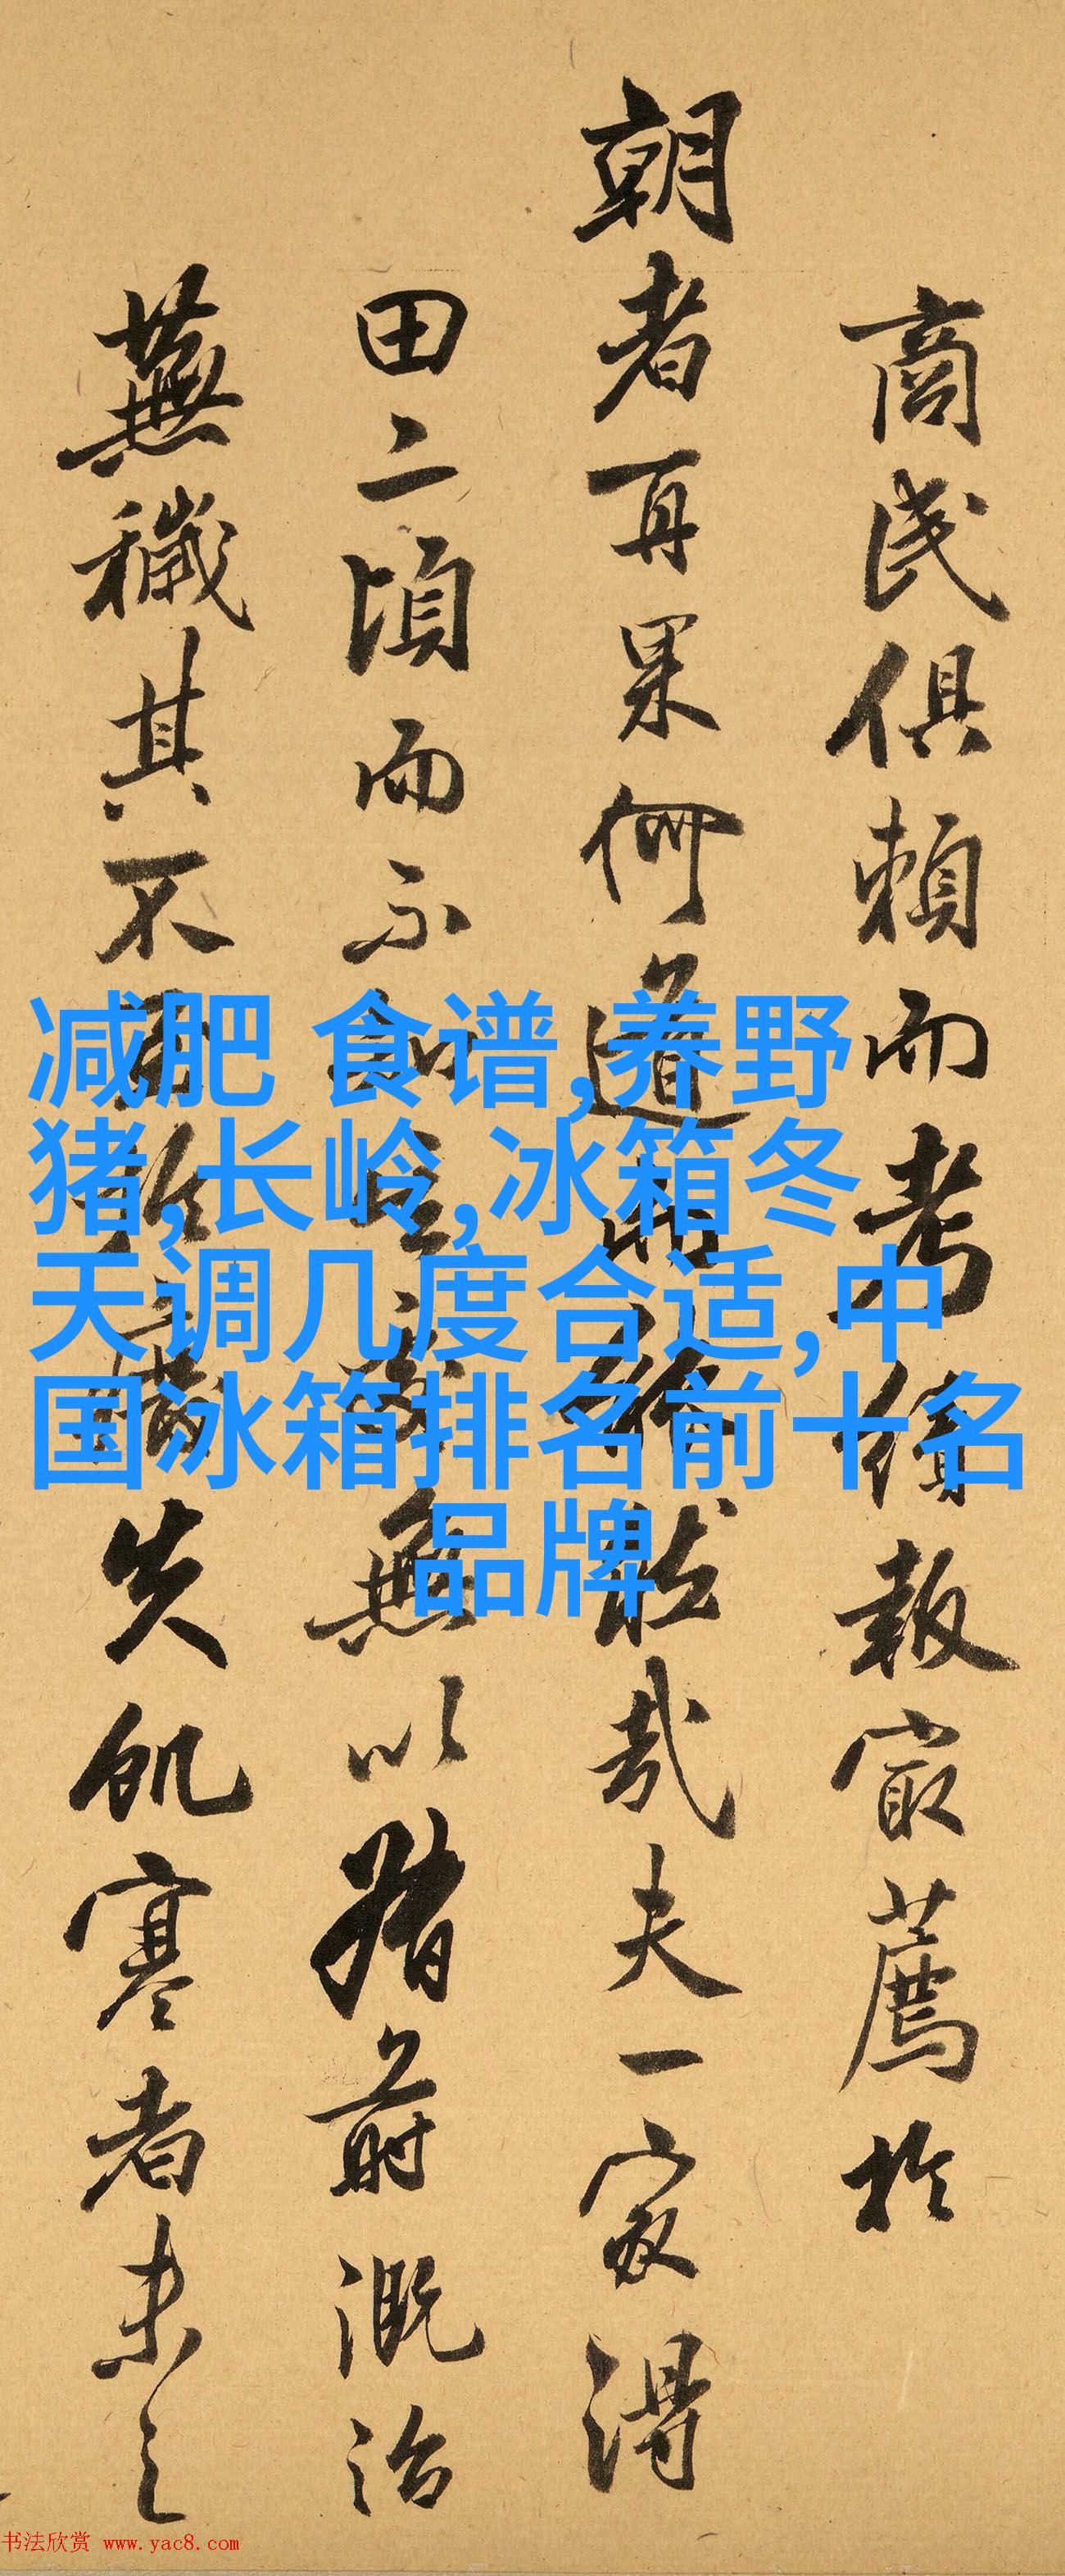 商民俱頼而考績報㝡薦於
朝者再果何道而能然哉夫一家得
田二頃而不知
無以耤前溉治
蕪穢其不
失飢寒者未之
减肥 食谱,养野
猪,长岭,冰箱冬
天调几度合适,中
国冰箱排名前十名
品牌
书法欣赏 www.yac8.com